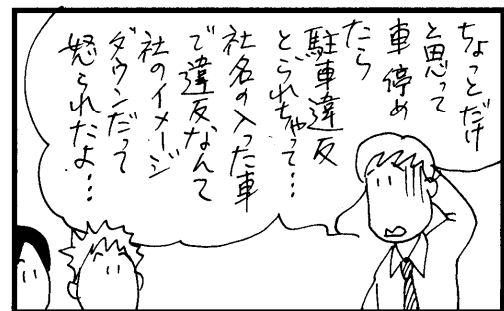 ちょっとだけ
と思って
車停め
たら
駐車違反
とられちゃって…
社名の入った車
で違反なんて
社のイメージ
ダウンだって
怒られたよ…